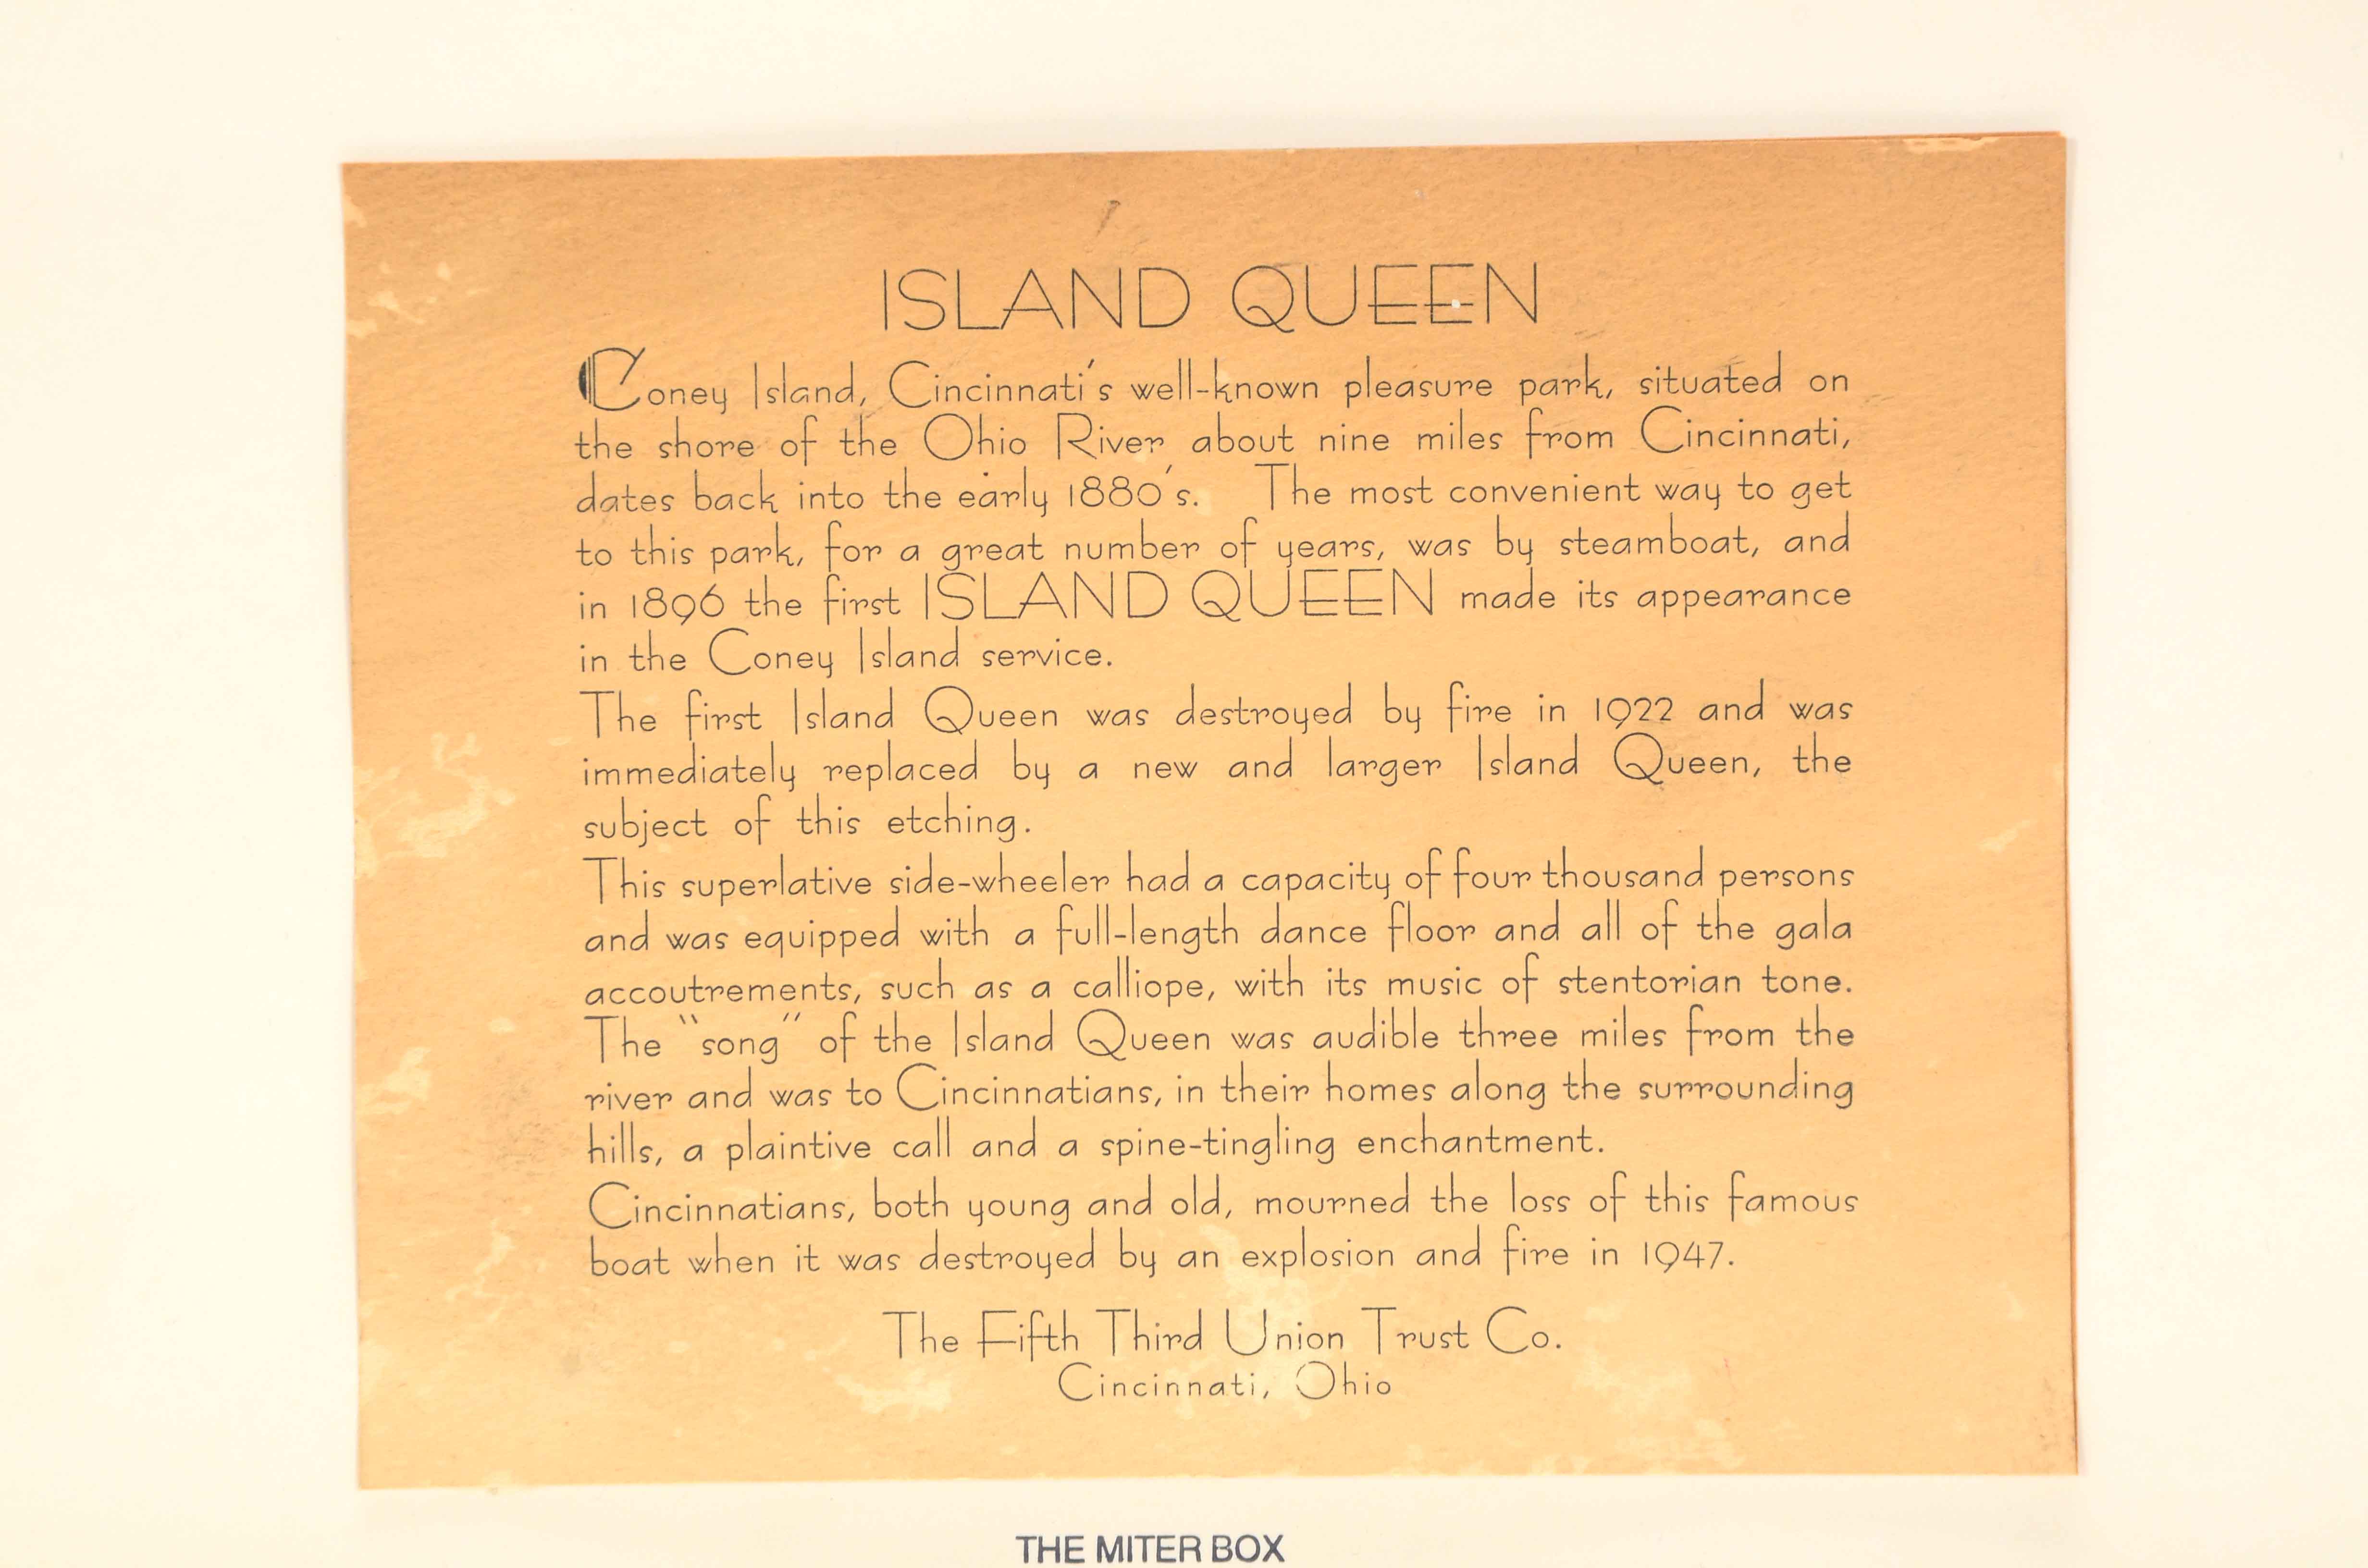 ISLAND QUEEN
Coney Island, Cincinnati's well-known pleasure park, situated on
the shore of the Ohio River about nine miles from Cincinnati,
dates back into the early 1880's. The most convenient way to get
to this park, for a great number of years, was by steamboat, and
in 1896 the first ISLAND QUEEN made its appearance
in the Coney Island service.
The first Island Queen was destroyed by fire in 1922 and was
immediately replaced by a new and larger Island Queen, the
subject of this etching.
This superlative side-wheeler had a capacity of four thousand persons
and was equipped with a full-length dance floor and all of the gala
accoutrements, such as a calliope, with its music of stentorian tone.
The "song" of the Island Queen was audible three miles from the
river and was to Cincinnatians, in their homes along the surrounding
hills, a plaintive call and a spine-tingling enchantment.
Cincinnatians, both young and old, mourned the loss of this famous
boat when it was destroyed by an explosion and fire in 1947.
The Fifth Third Union Trust Co.
Cincinnati, Ohio
THE MITER BOX